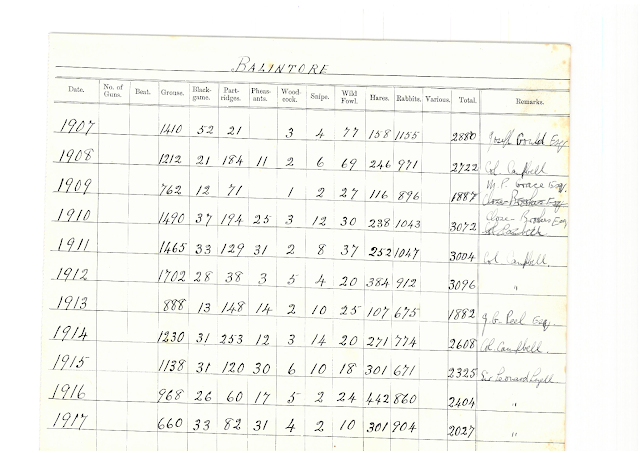 BALINTORE
Date. No. of Guns. Beat. Grouse. Black-game. Part-ridges. Pheas-ants. Wood-cock. Snipe. Wild Fowl. Hares. Rabbits. Various. Total. Remarks.
1907 1410 52 21 3 4 77 158 1155 2880 Joseph Gould Esq
1908 1212 21 184 11 2 6 69 246 971 2722 Col. Campbell
M. P. Grace Esq.
1909 762 12 71 1 2 27 116 896 1887 Close-Brooks Esq
1910 1490 37 194 25 3 12 30 238 1043 3072 Close-Brooks Esq
1911 1465 33 129 31 2 8 37 252 1047 3004 Col Campbell.
1912 1702 28 38 3 5 4 20 384 912 3096 "
1913 888 13 148 14 2 10 25 107 675 1882 G. Peel Esq.
1914 1230 31 253 12 3 14 20 271 774 2608 Col. Campbell.
1915 1138 31 120 30 6 10 18 301 671 2325 Sir Leonard Lyell
1916 968 26 60 17 5 2 24 442 860 2404 "
1917 660 33 82 31 4 2 10 301 904 2027 "